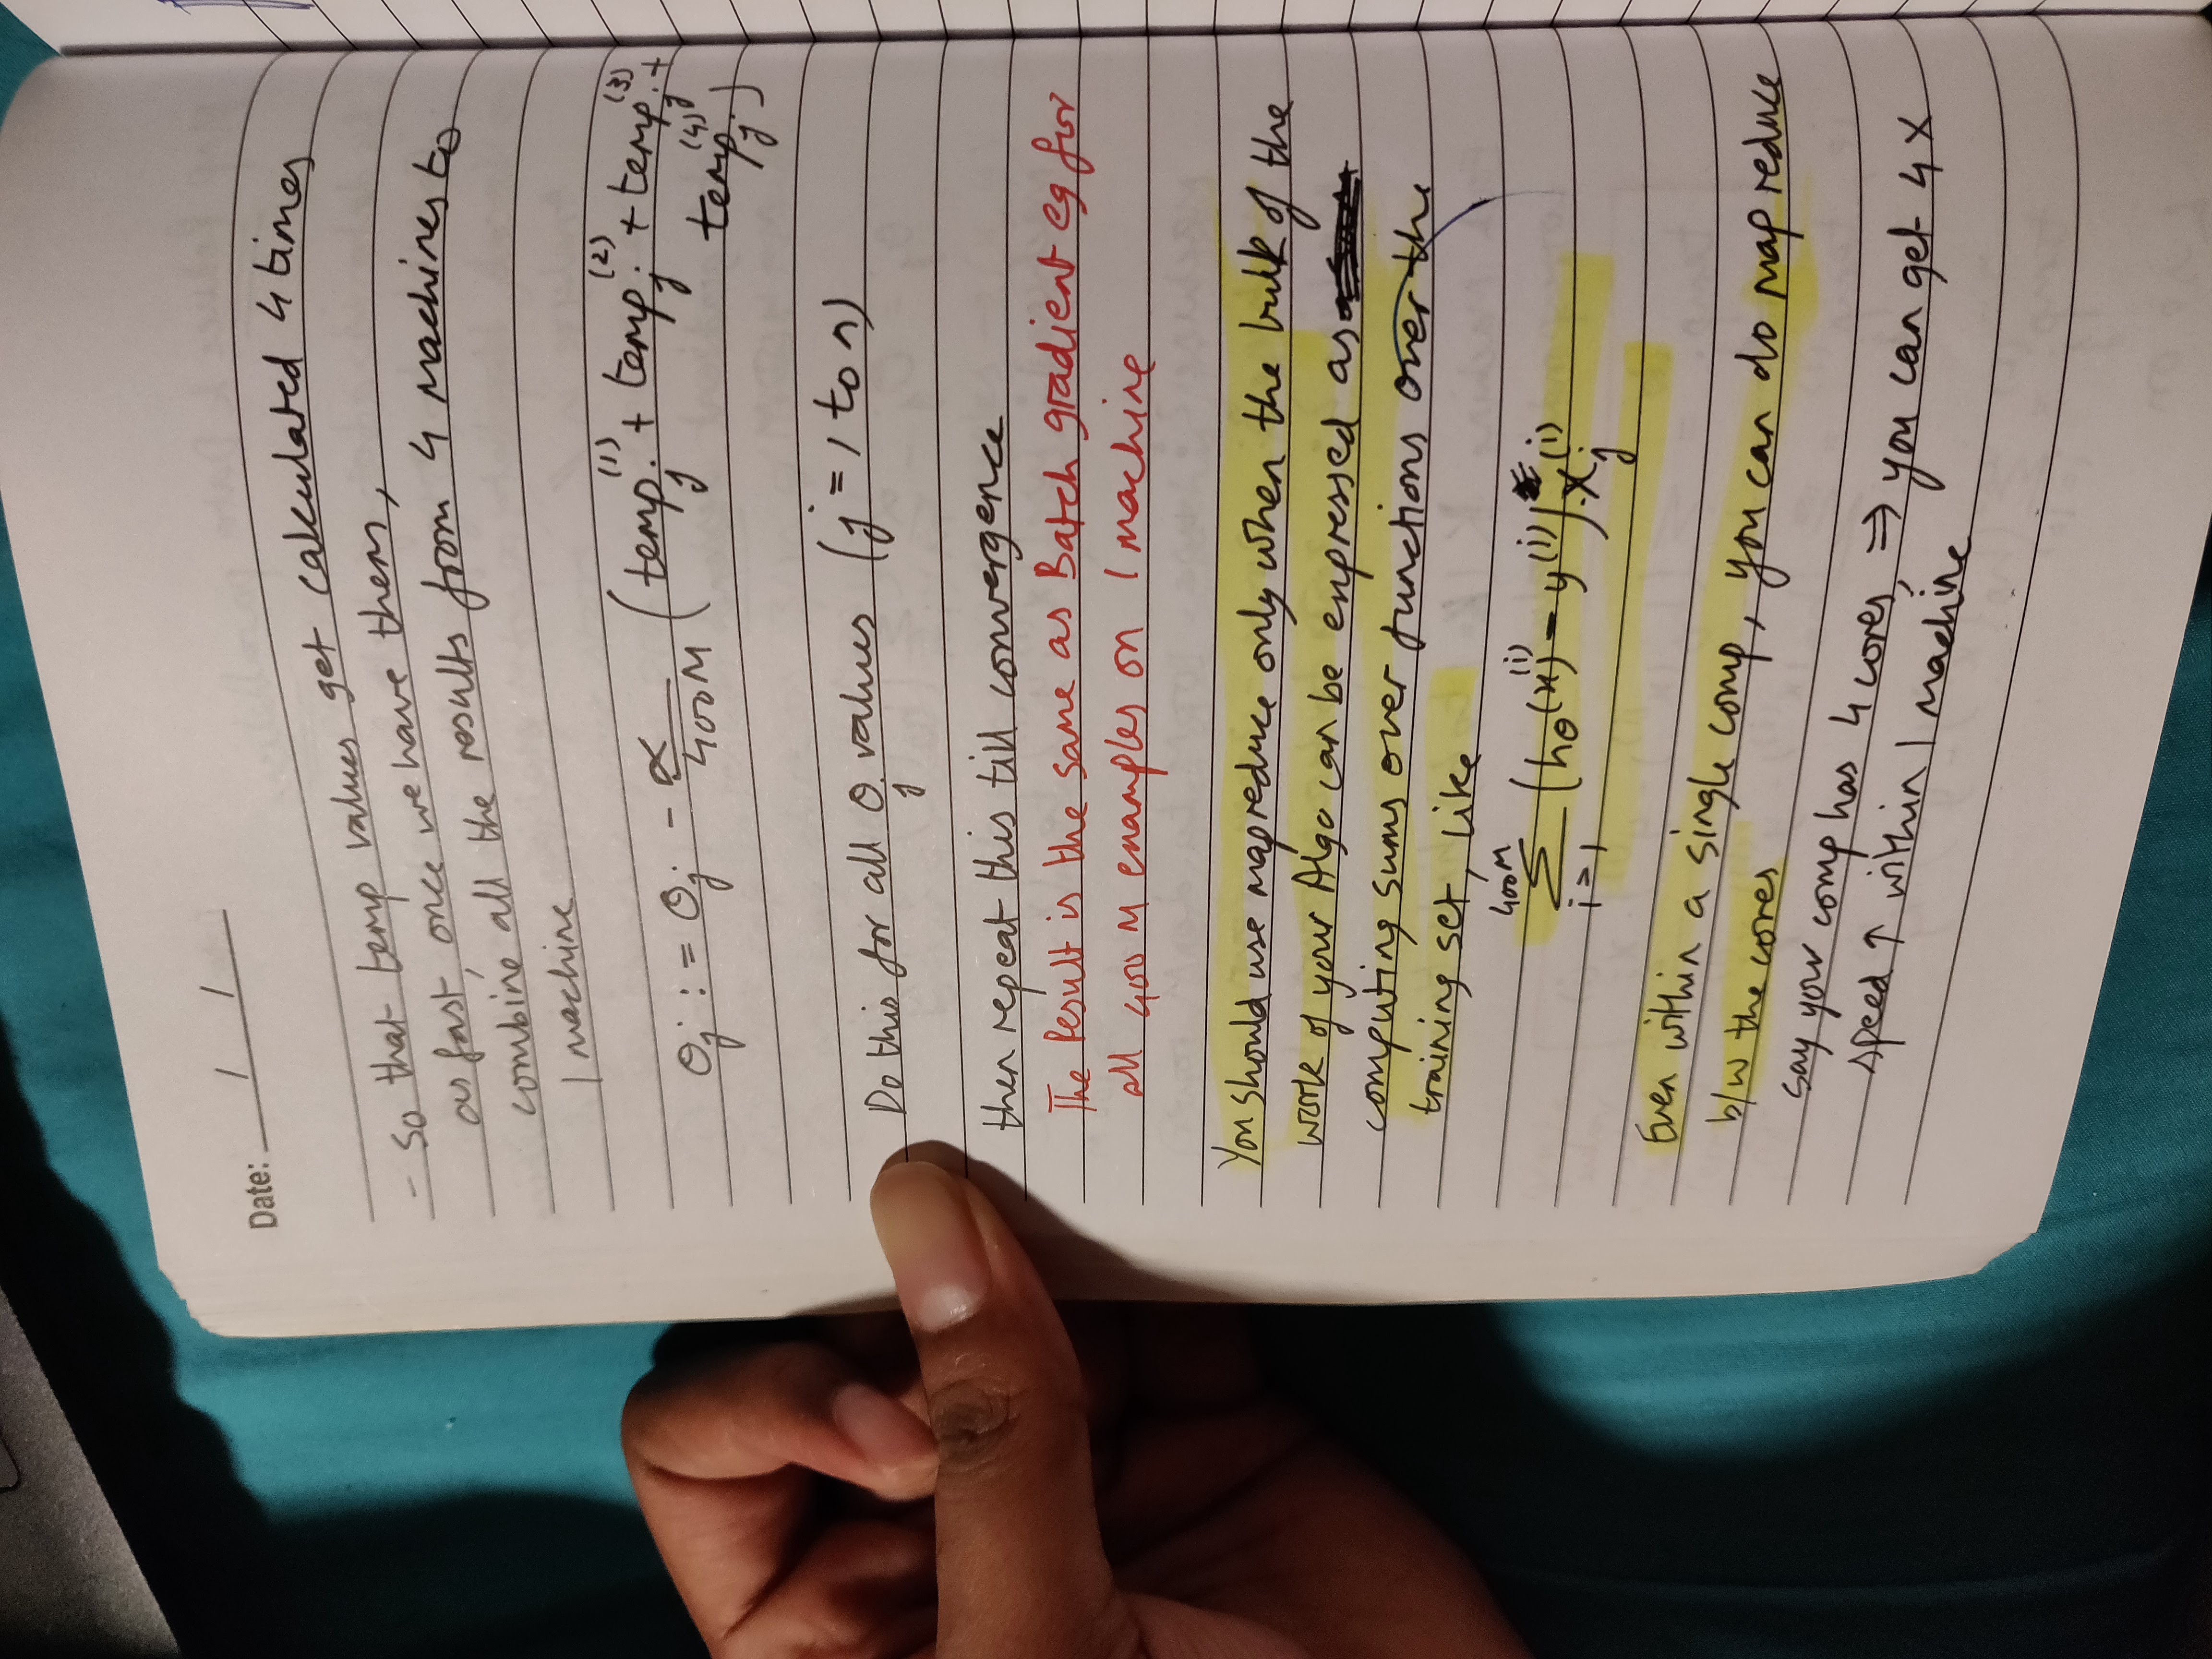 Date: / /
- So that temp values get calculated 4 times
as fast, once we have them,
combine all the results from 4 machines to
1 machine
θj := θj - α/400M (tempj(1) + tempj(2) + tempj(3) +
tempj(4))
Do this for all θj values (j = 1 to n)
then repeat this till convergence
The Result is the same as Batch gradient eg for
all 400 M examples on 1 machine
You should use mapreduce only when the bulk of the
work of your Algo can be expressed as
computing sums over functions over the
training set, like
400M
Σ (hθ(x(i)) - y(i)) . xj(i)
i=1
Even within a single comp, you can do map reduce
b/w the cores
say your comp has 4 cores, ⇒ you can get 4X
speed ↑ within 1 machine